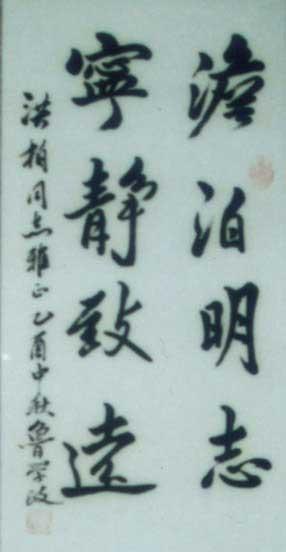 澹泊明志
寧靜致遠
洪柏同志雅正乙酉中秋魯學政